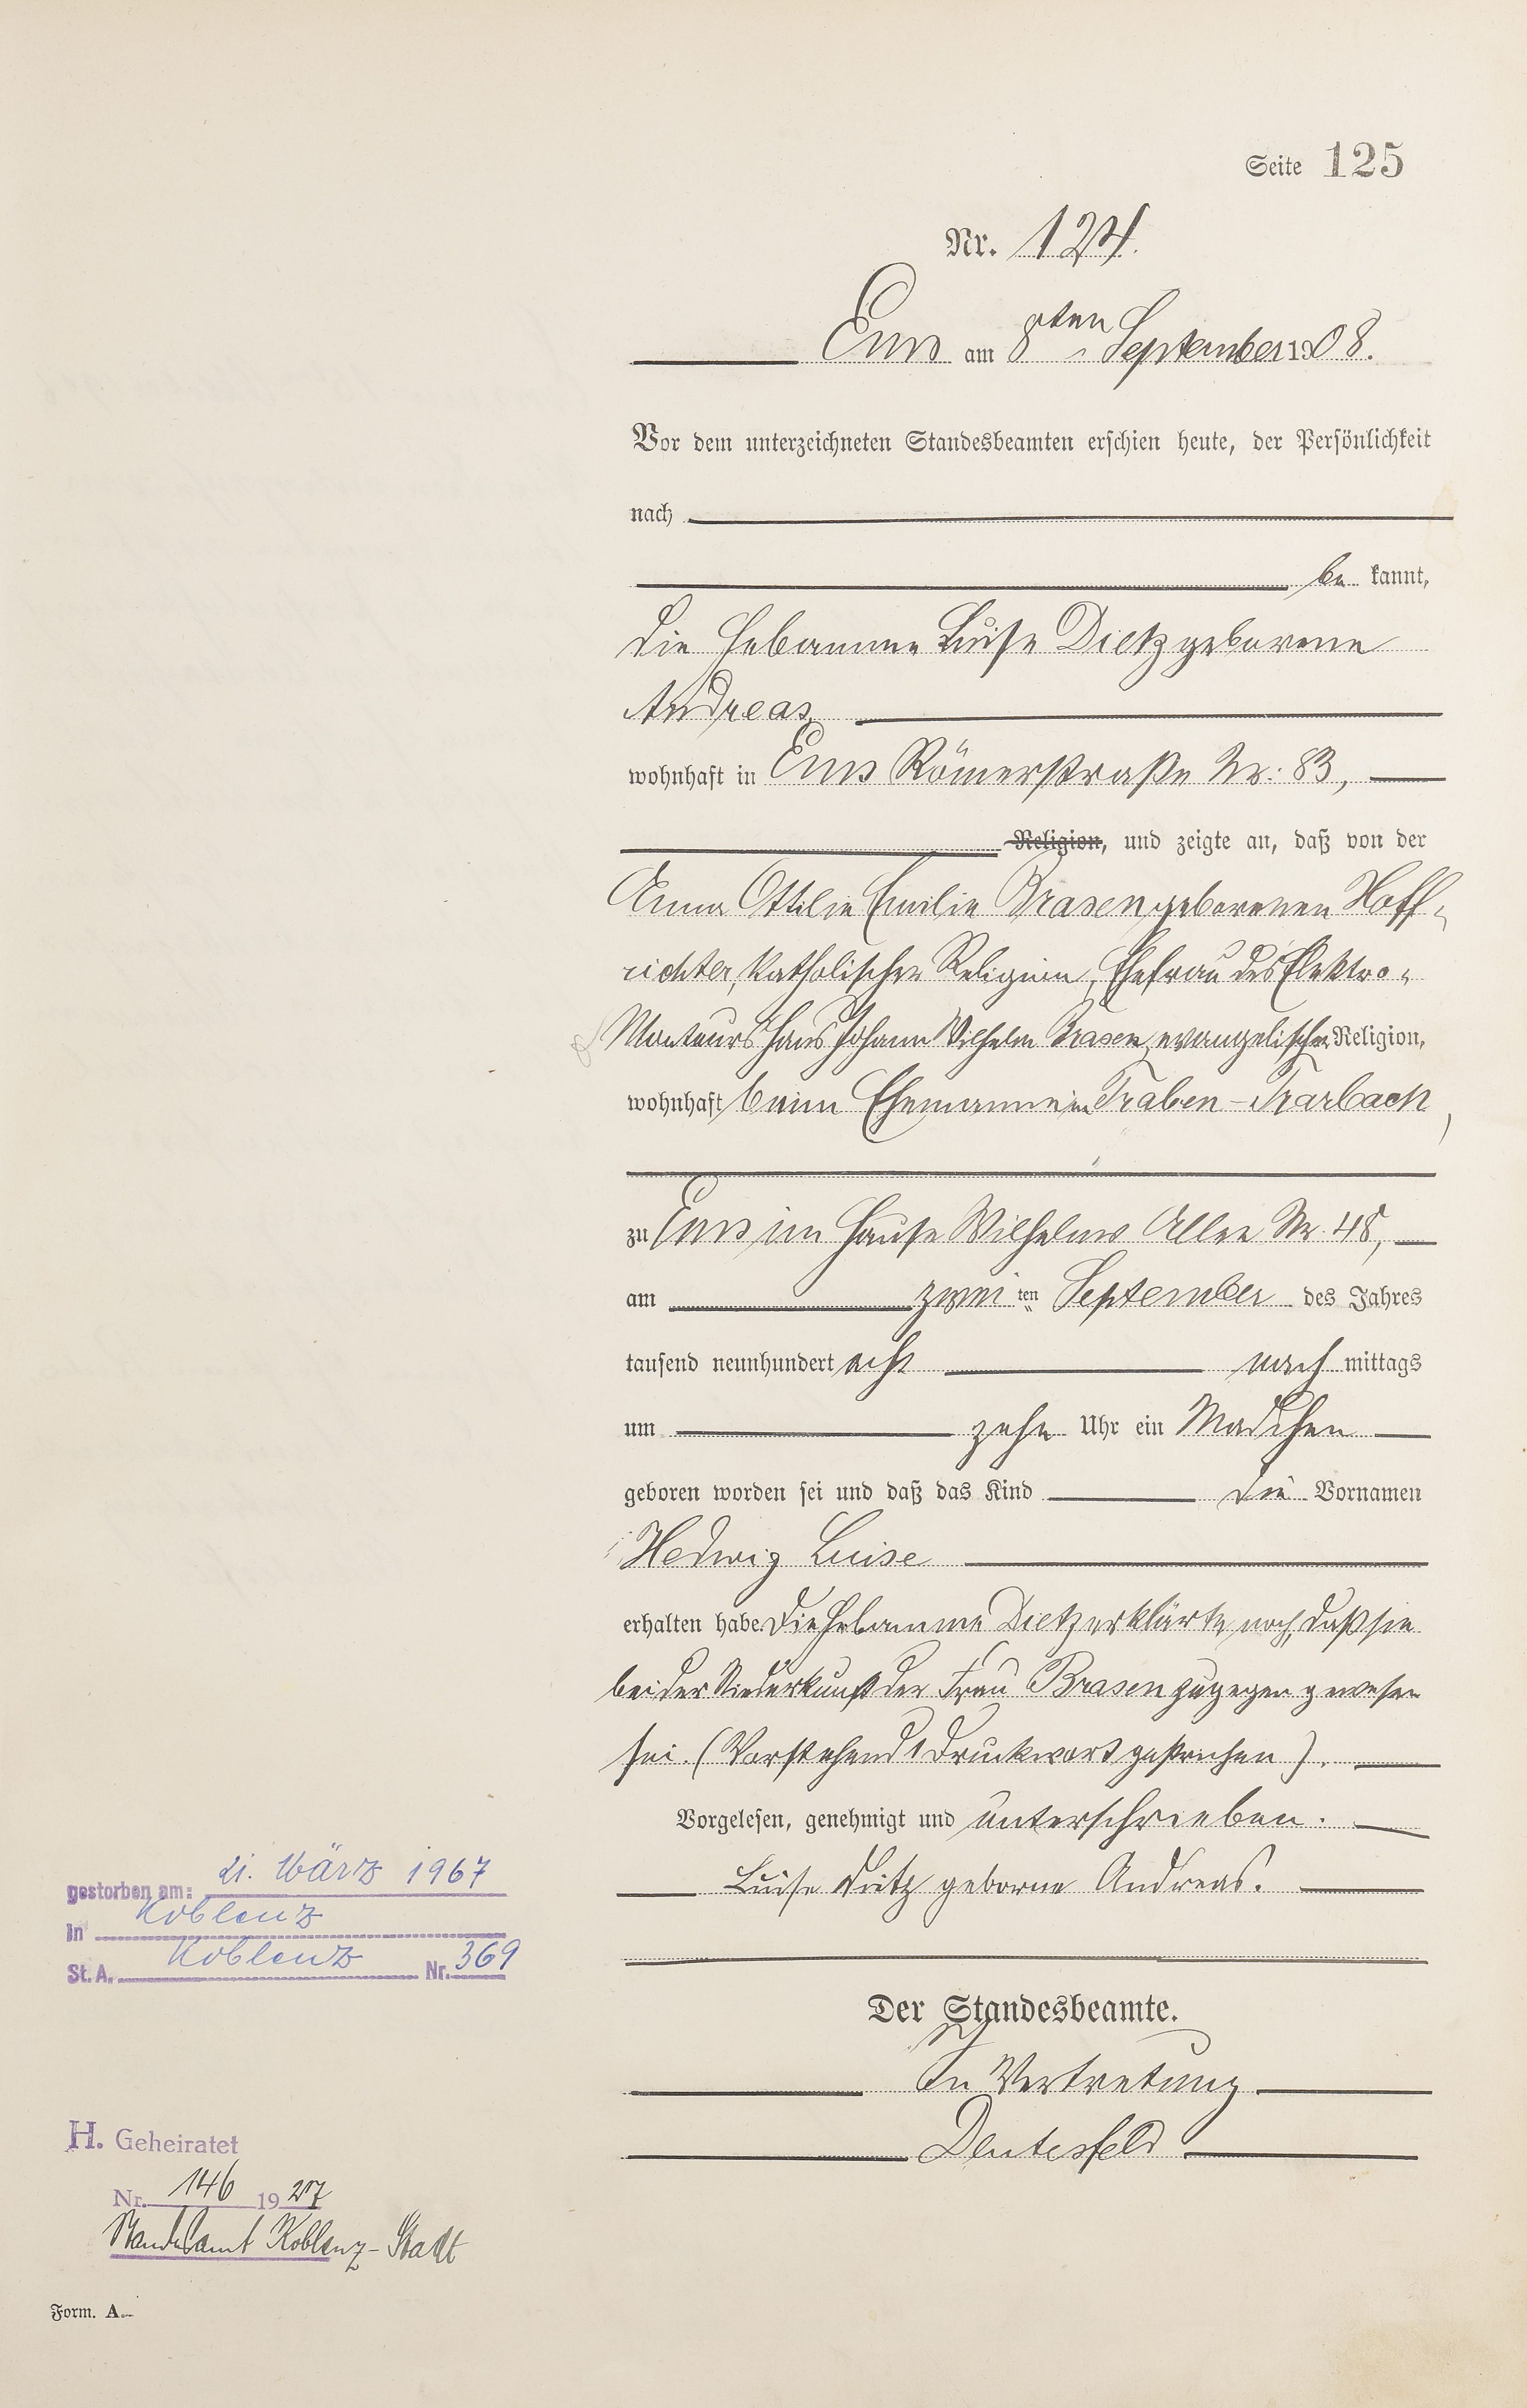 Seite 125
Nr. 124.
Ems am 8ten September 1908.
Vor dem unterzeichneten Standesbeamten erschien heute, der Persönlichkeit
nach
be kannt,
die Hebamme Luise Dietz geborene
Andreas,
wohnhaft in Ems Römerstraße Nr. 83,
Religion, und zeigte an, daß von der
Anna Ottilie Emilie Brasen geborenen Hoff-
richter, katholischer Religion, Ehefrau des Elektro-
Monteurs Hans Johann Wilhelm Brasen, evangelischer Religion,
wohnhaft beim Ehemanne in Traben-Trarbach,
zu Ems im Hause Wilhelms Allee Nr. 48,
am zweiten September des Jahres
tausend neunhundert acht nach mittags
um zehn Uhr ein Mädchen
geboren worden sei und daß das Kind die Vornamen
Hedwig Luise
erhalten habe. Die Hebamme Dietz erklärte noch, daß sie
bei der Niederkunft der Frau Brasen zugegen gewesen
sei. (Vorstehend 1 Druckwort gestrichen).
Vorgelesen, genehmigt und unterschrieben.
Luise Dietz geborne Andreas.
Der Standesbeamte.
In Vertretung
gestorben am: 21. März 1967
in Koblenz
St. A. Koblenz Nr. 369
H. Geheiratet
Nr. 146 1927
Standesamt Koblenz-Stadt
Form. A.